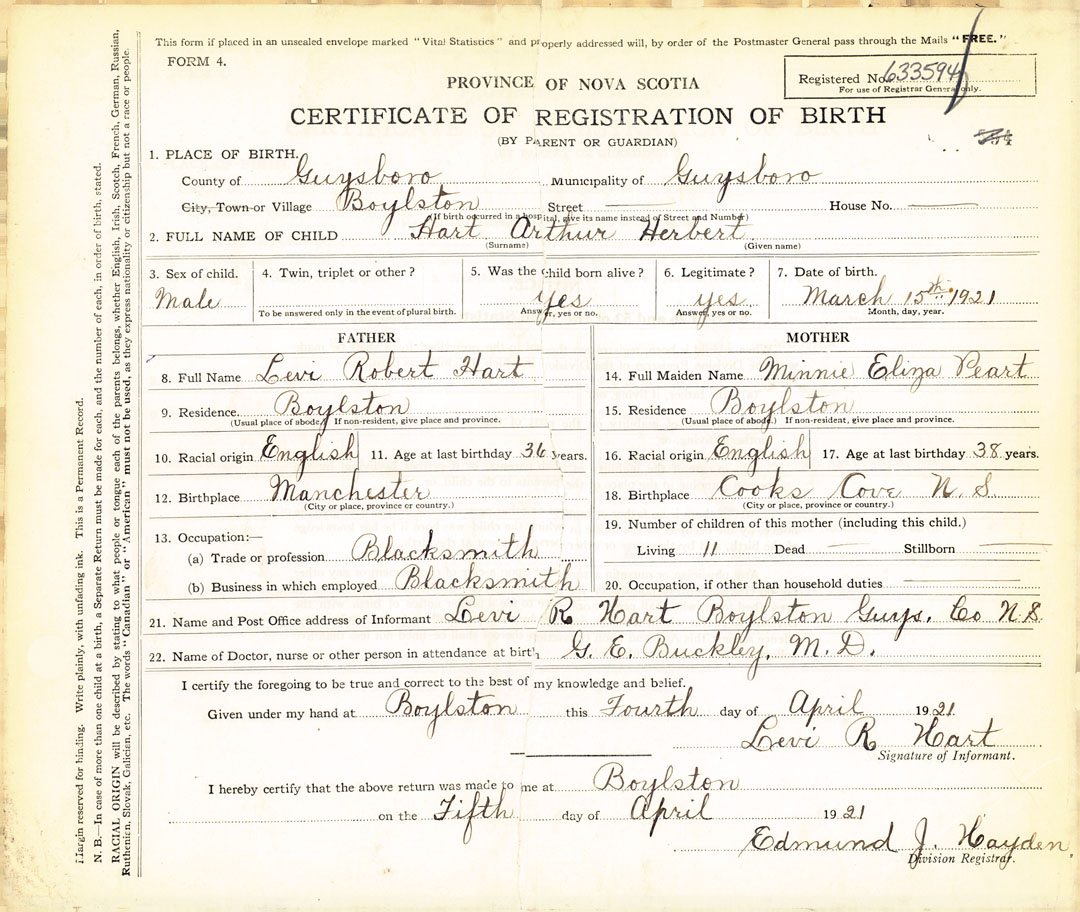 This form if placed in an unsealed envelope marked "Vital Statistics" and properly addressed will, by order of the Postmaster General pass through the Mails "FREE."
FORM 4.
Registered No. 633594
For use of Registrar General only.
PROVINCE OF NOVA SCOTIA
CERTIFICATE OF REGISTRATION OF BIRTH
(BY PARENT OR GUARDIAN)
1. PLACE OF BIRTH.
County of Guysboro Municipality of Guysboro
City, Town or Village Boylston Street House No.
(If birth occurred in a hospital, give its name instead of Street and Number)
2. FULL NAME OF CHILD Hart Arthur Herbert
(Surname) (Given name)
3. Sex of child. 4. Twin, triplet or other? 5. Was the child born alive? 6. Legitimate? 7. Date of birth.
Male yes yes March 15th 1921
To be answered only in the event of plural birth. Answer, yes or no. Answer, yes or no. Month, day, year.
FATHER MOTHER
8. Full Name Levi Robert Hart
9. Residence. Boylston
(Usual place of abode.) If non-resident, give place and province.
10. Racial origin English 11. Age at last birthday 36 years.
12. Birthplace Manchester
(City or place, province or country.)
13. Occupation:—
(a) Trade or profession Blacksmith
(b) Business in which employed Blacksmith
14. Full Maiden Name Minnie Eliza Peart
15. Residence Boylston
(Usual place of abode.) If non-resident, give place and province.
16. Racial origin English 17. Age at last birthday 38 years.
18. Birthplace Cooks Cove N. S.
(City or place, province or country.)
19. Number of children of this mother (including this child.)
Living 11 Dead Stillborn
20. Occupation, if other than household duties
21. Name and Post Office address of Informant Levi R Hart Boylston Guys. Co N.S.
22. Name of Doctor, nurse or other person in attendance at birth G. E. Buckley, M. D.
I certify the foregoing to be true and correct to the best of my knowledge and belief.
Given under my hand at Boylston this Fourth day of April 1921
Levi R Hart
Signature of Informant.
I hereby certify that the above return was made to me at Boylston
on the Fifth day of April 1921
Edmund J. Hayden
Division Registrar.
Margin reserved for binding. Write plainly, with unfading ink. This is a Permanent Record.
N. B.—In case of more than one child at a birth, a Separate Return must be made for each, and the number of each, in order of birth, stated.
RACIAL ORIGIN will be described by stating to what people or tongue each of the parents belongs, whether English, Irish, Scotch, French, German, Russian,
Ruthenian, Slovak, Galician, etc. The words "Canadian" or "American" must not be used, as they express nationality or citizenship but not a race or people.